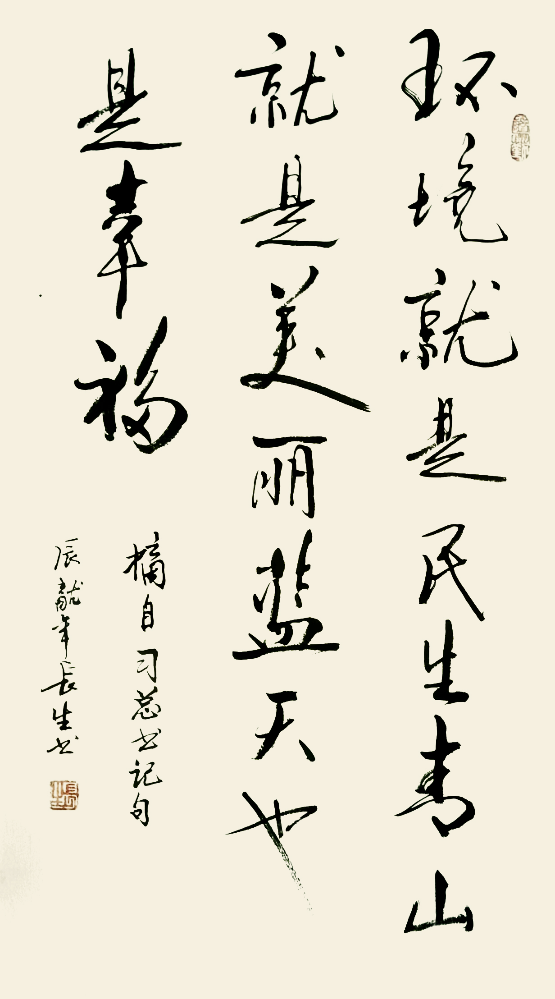 环境就是民生青山
就是美丽蓝天也
是幸福
摘自习总书记句
辰龙年长生书